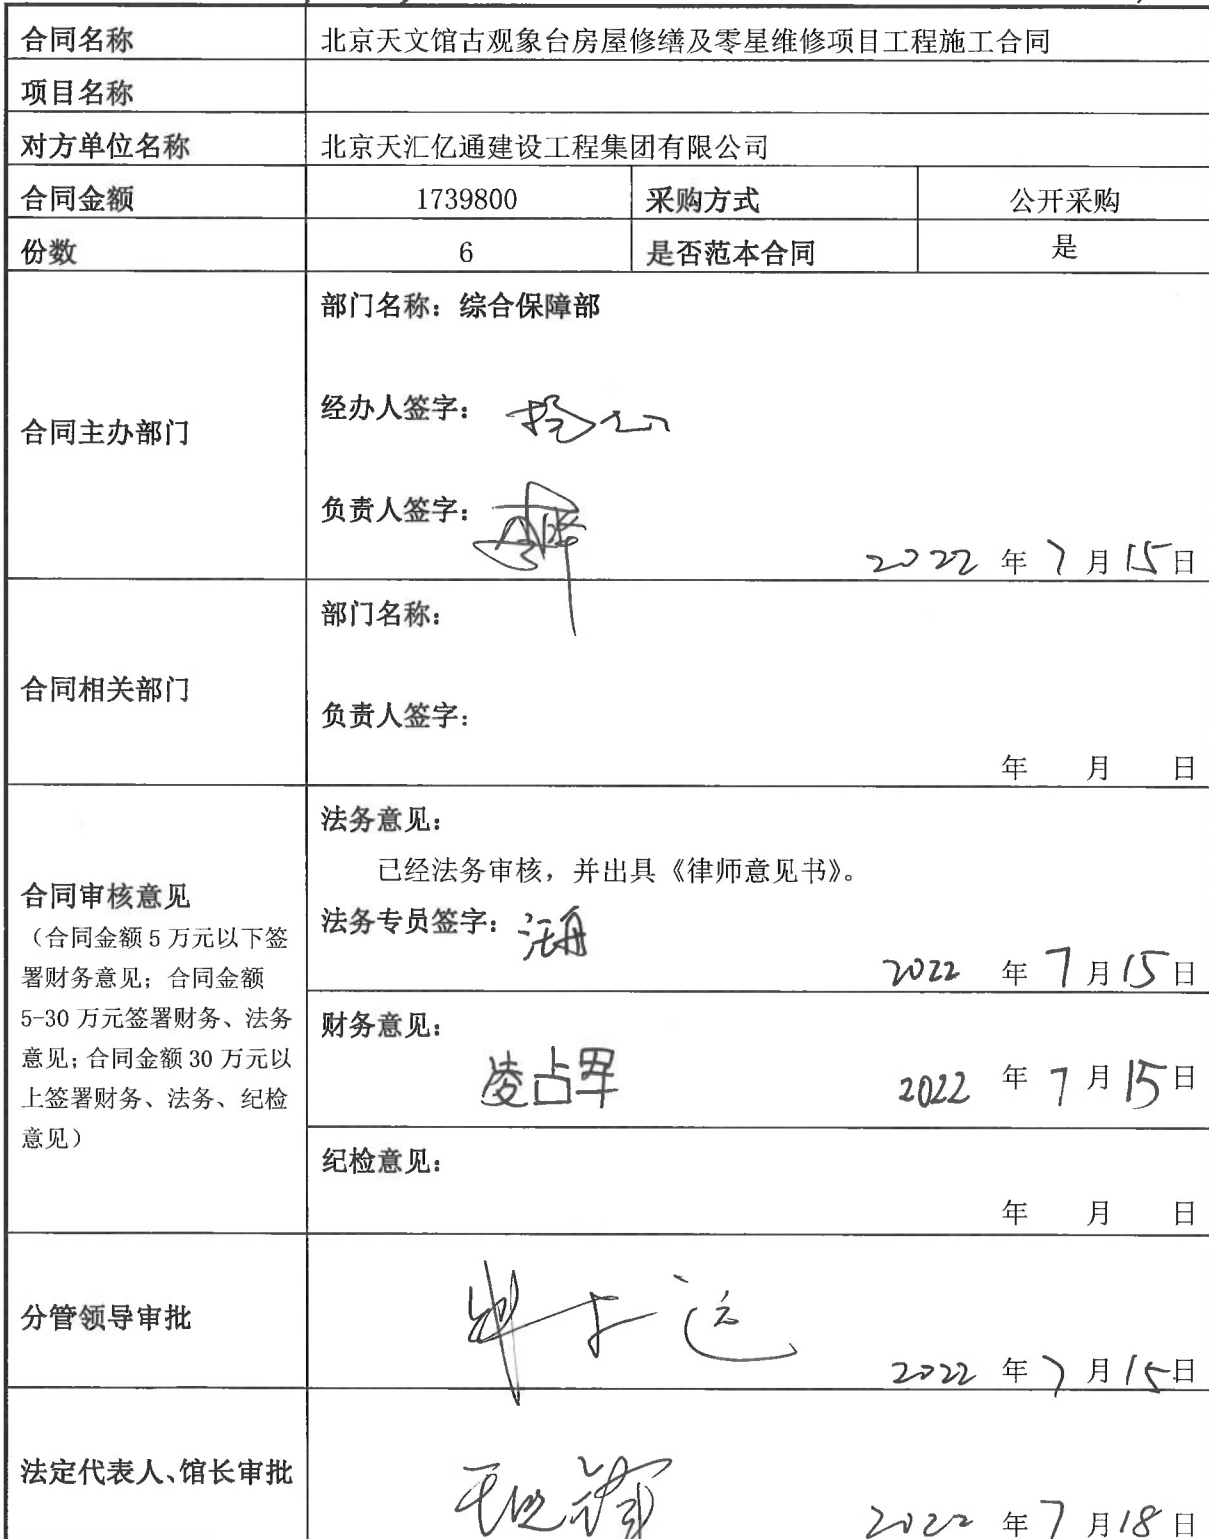 合同名称 北京天文馆古观象台房屋修缮及零星维修项目工程施工合同
项目名称
对方单位名称 北京天汇亿通建设工程集团有限公司
合同金额 1739800 采购方式 公开采购
份数 6 是否范本合同 是
合同主办部门
部门名称：综合保障部
经办人签字：
负责人签字：
2022 年 7 月 15 日
合同相关部门
部门名称：
负责人签字：
年 月 日
合同审核意见
（合同金额 5 万元以下签
署财务意见；合同金额
5-30 万元签署财务、法务
意见；合同金额 30 万元以
上签署财务、法务、纪检
意见）
法务意见：
已经法务审核，并出具《律师意见书》。
法务专员签字：
2022 年 7 月 15 日
财务意见：
凌占军
2022 年 7 月 15 日
纪检意见：
年 月 日
分管领导审批
2022 年 7 月 15 日
法定代表人、馆长审批
2022 年 7 月 18 日